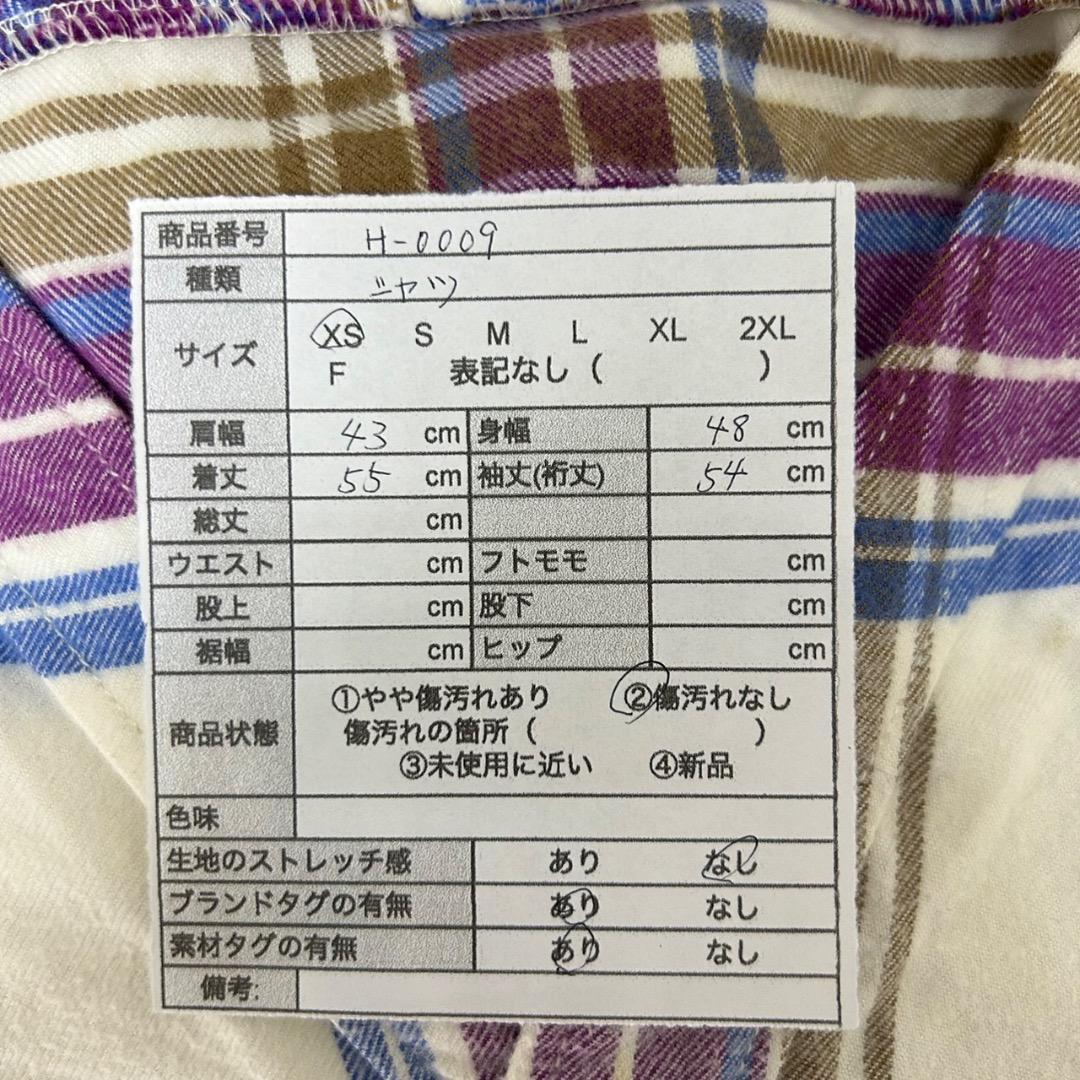 商品番号 H-0009
種類 シャツ
サイズ XS S M L XL 2XL
F 表記なし ( )
肩幅 43 cm 身幅 48 cm
着丈 55 cm 袖丈(裄丈) 54 cm
総丈 cm
ウエスト cm フトモモ cm
股上 cm 股下 cm
裾幅 cm ヒップ cm
商品状態 ①やや傷汚れあり ②傷汚れなし
傷汚れの箇所 ( )
③未使用に近い ④新品
色味
生地のストレッチ感 あり なし
ブランドタグの有無 あり なし
素材タグの有無 あり なし
備考: